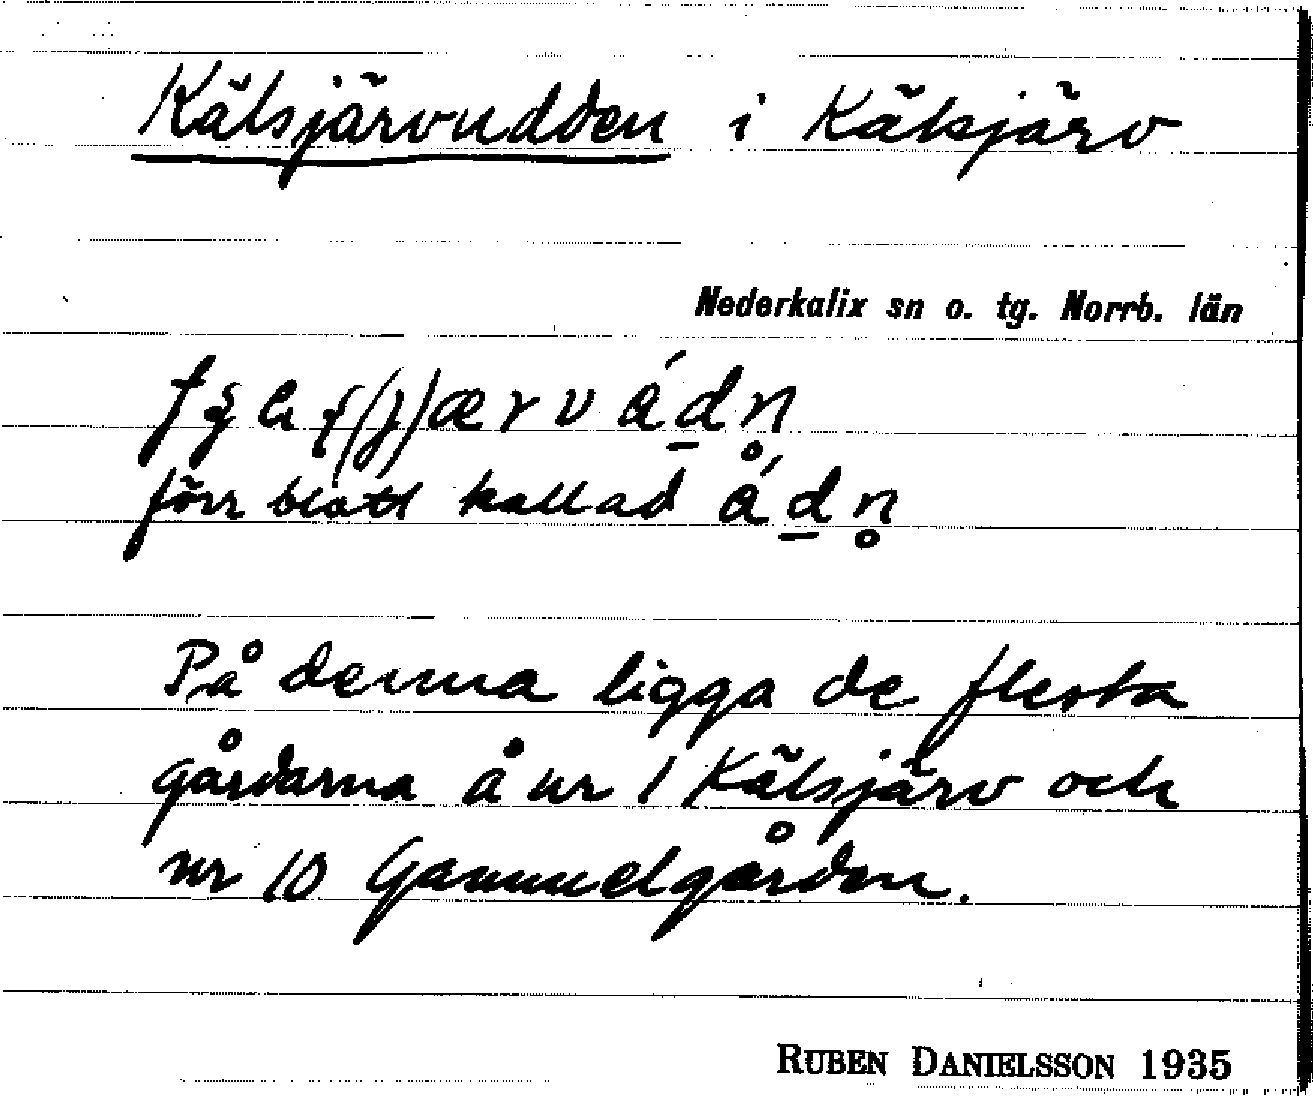 Kälsjärvudden i Kälsjärv
Nederkalix sn o. tg. Norrb. län
förr blott kallad
På denna ligga de flesta
gårdarna å nr 1 Kälsjärv och
nr 10 Gammelgården.
RUBEN DANIELSSON 1935